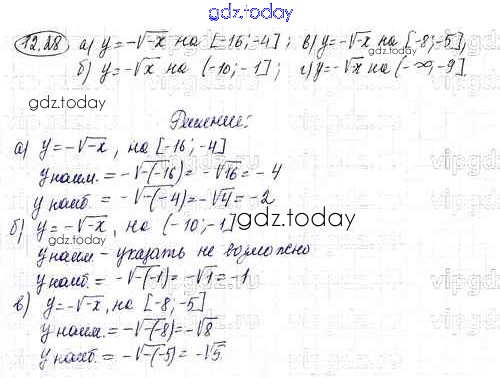 gdz.today
12.28 а) y=-√-x на [-16;-4]; в) y=-√-x на [-8;-5];
б) y=-√x на (-10;-1]; г) y=-√x на (-∞;-9].
gdz.today
Решение:
а) y=-√-x, на [-16;-4]
y наим. = -√-(-16) = -√16 = -4
y наиб. = -√-(-4) = -√4 = -2
б) y=-√-x, на (-10;-1]
gdz.today
y наим - указать не возможно
y наиб. = -√-(-1) = -√1 = -1
в) y=-√-x, на [-8;-5]
y наим. = -√-(-8) = -√8
y наиб. = -√-(-5) = -√5
gdz.today